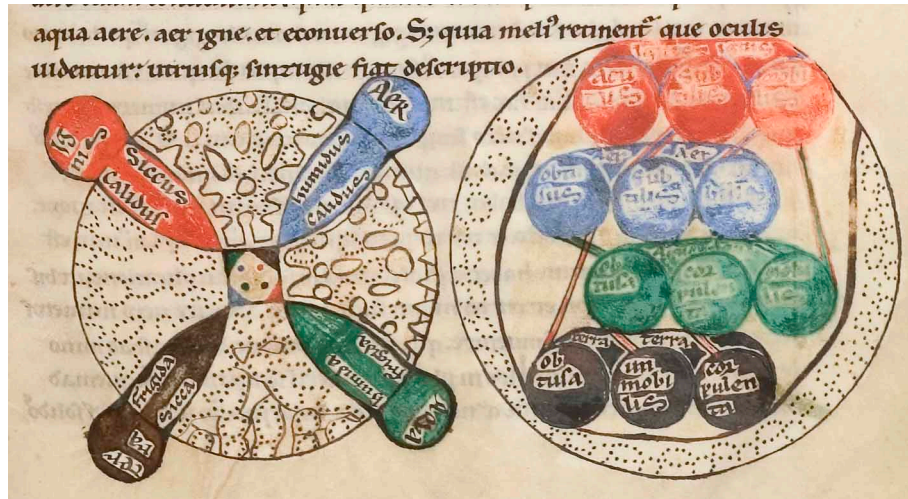 aqua aere. aer igne. et econuerso. S; quia meli⁹ retinent̄ que oculis
uidentur: utriusq; sinzugie fiat descriptio.
IG
NIS
Siccus
Calidus
AER
humidus
calidus
TER
RA
Frigida
Sicca
AQUA
frigida
humida
Ignis Ignis
ACU
TUS
SUB
TILIS
MOBI
LIS
Aer Aer
obtu
sus
Sub
tilis
bilis
ob
tusa
cor
pulen
ta
mobi
lis
terra terra
ob
tusa
inmobi
lis
cor
pulen
ta